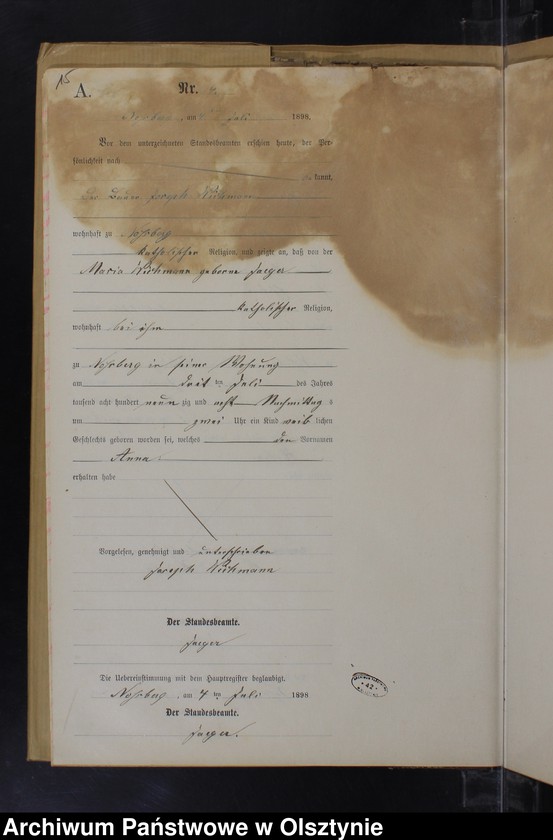 15
A. Nr.
am Juli 1898.
Vor dem unterzeichneten Standesbeamten erschien heute, der Per-
sönlichkeit nach
kannt,
Der Bauer Joseph
wohnhaft zu Noßberg
katholischer Religion, und zeigte an, daß von der
Maria geborne Jaeger
katholischer Religion,
wohnhaft bei ihm
zu Noßberg in seiner Wohnung
am drei ten Juli des Jahres
tausend acht hundert neun zig und acht Nachmittag s
um zwei Uhr ein Kind weib lichen
Geschlechts geboren worden sei, welches den Vornamen
Anna
erhalten habe
Vorgelesen, genehmigt und unterschrieben
Joseph
Der Standesbeamte.
Jaeger
Die Uebereinstimmung mit dem Hauptregister beglaubigt.
Noßberg, am 4 ten Juli 1898
Der Standesbeamte.
Jaeger.
42
Archiwum Państwowe w Olsztynie